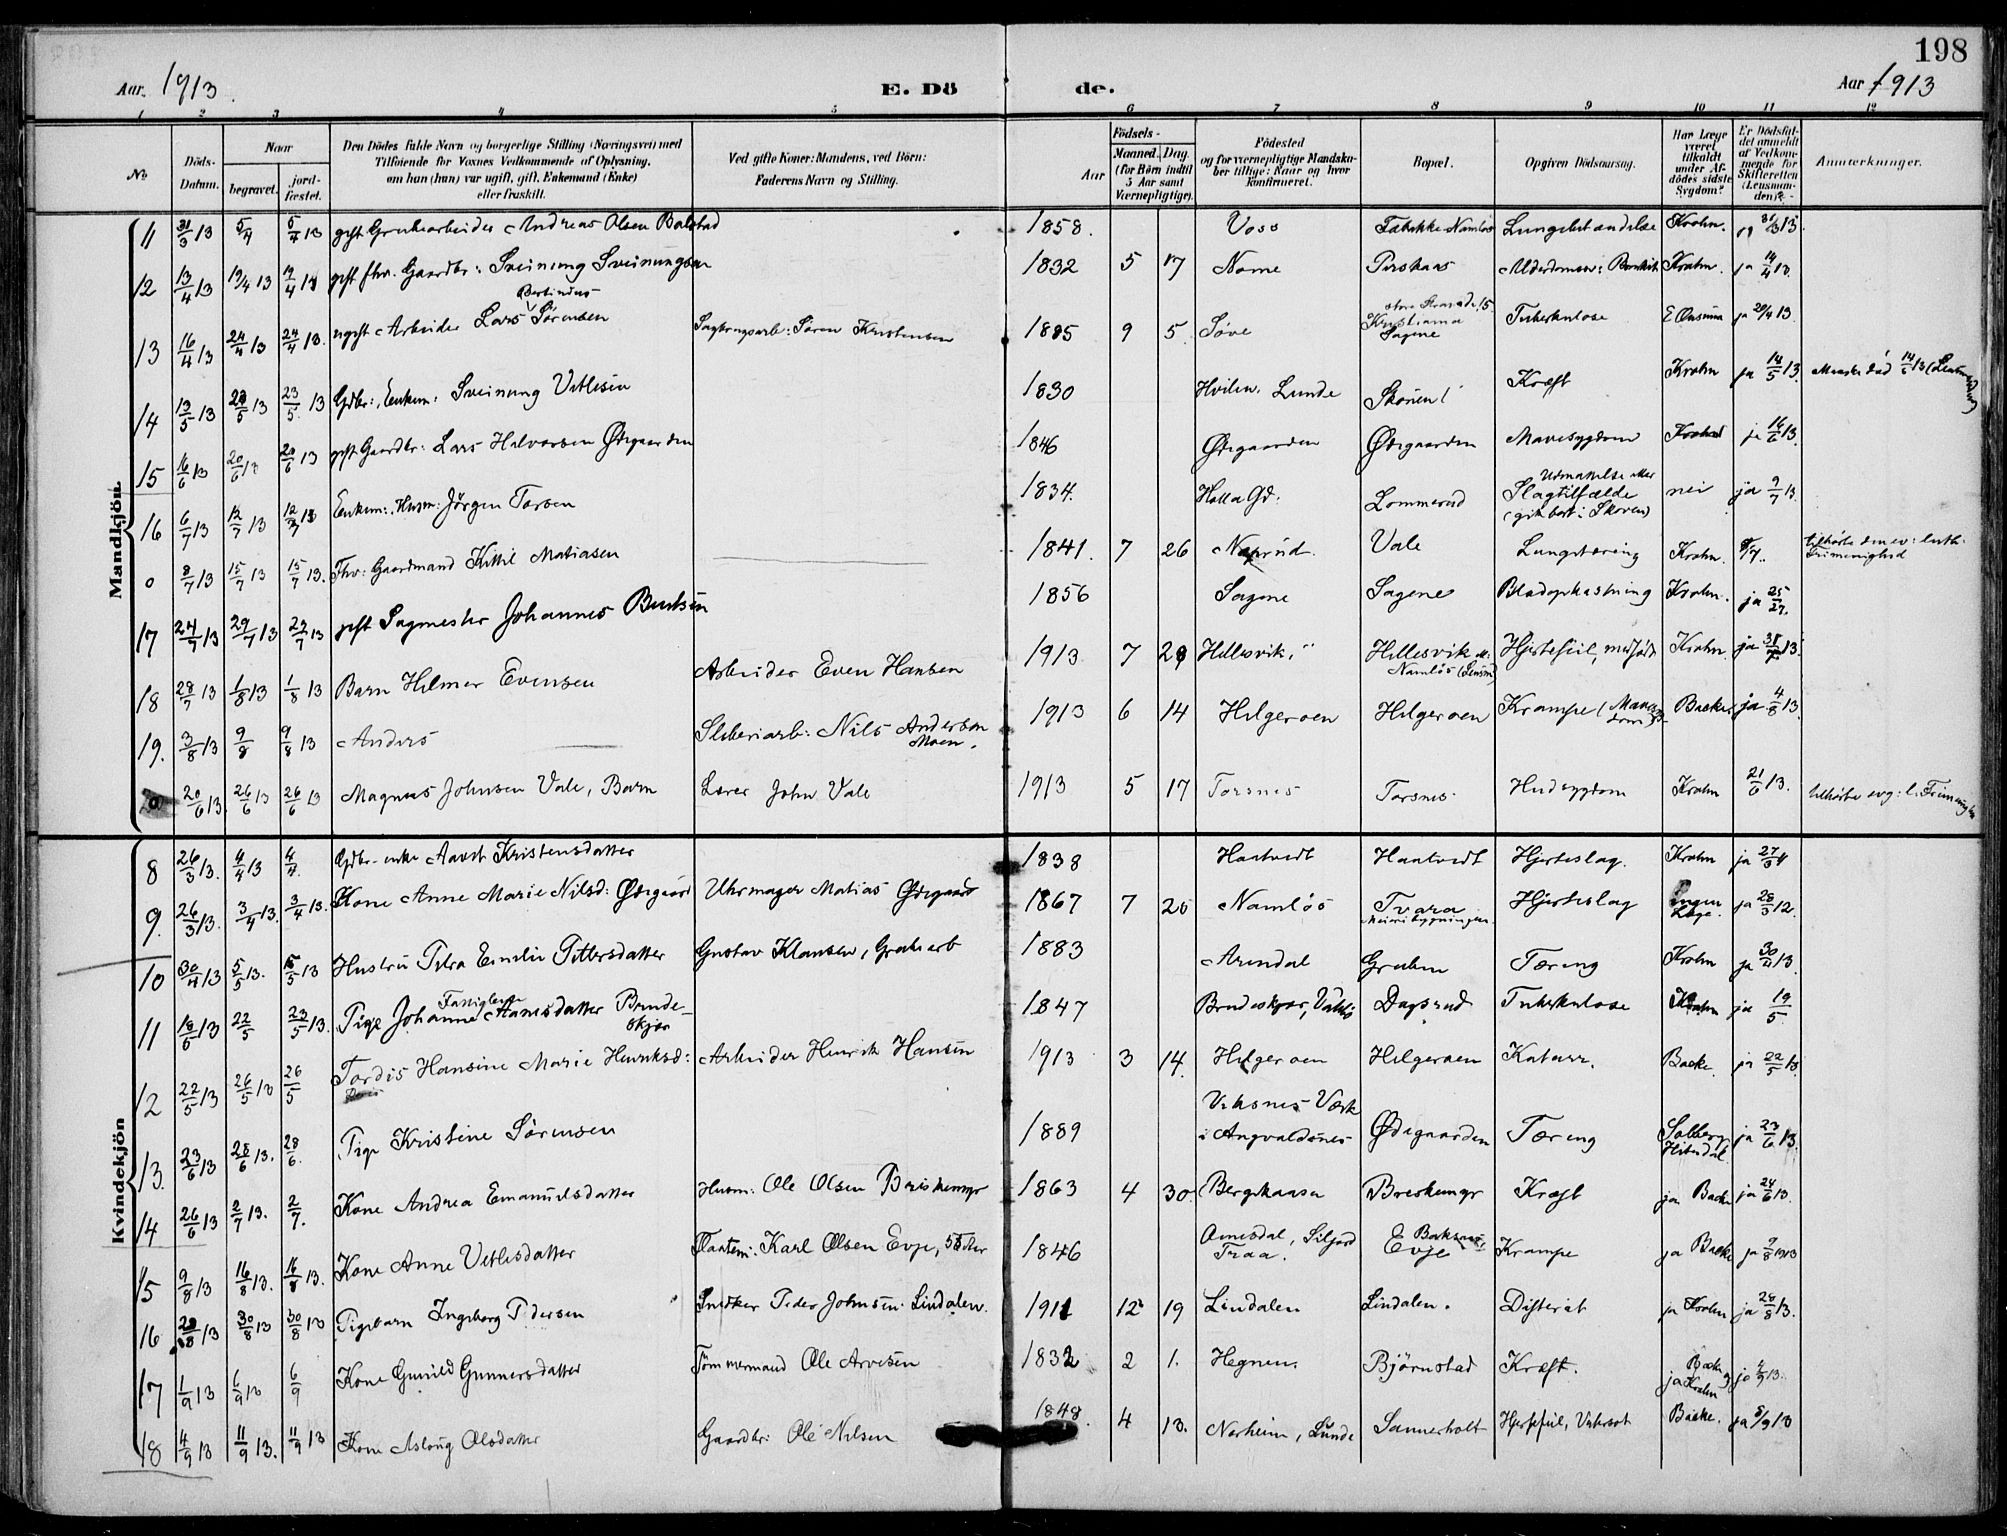 198
Aar. 1913.
E. Döde.
Aar 1913
1 2 3 4 5 6 7 8 9 10 11 12
No.
Döds-Datum.
Naar
begravet.
jordfæstet.
Den Dödes fulde Navn og borgerlige Stilling (Næringsvei) med
Tilføiende for Voxnes Vedkommende af Oplysning,
om han (hun) var ugift, gift, Enkemand (Enke)
eller fraskilt.
Ved gifte Koner: Mandens, ved Börn:
Faderens Navn og Stilling.
Födsels-
Aar
Maaned. Dag.
(for Börn indtil
5 Aar samt
Værnepligtige).
Födested
og for værnepligtige Mandskaber tillige: Naar og hvor
konfirmeret.
Bopæl.
Opgiven Dödsaarsag.
Har Læge
været
tilkaldt
under Afdödes sidste
Sygdom?
Er Dödsfaldet anmeldt
af Vedkommende for
Skifteretten
(Lensmanden)?
Anmerkninger.
Mandkjön.
11 31/3 13 5/4 5/4 13 gift Grubearbeider Andreas Olsen Balstad 1858. Voss Fabrikke Namløs Lungebetændelse Krohn. ja 31/3 13
12 13/4 13 19/4 13 19/4 13 gift fhv. Gaardbr: Sveinung Sveinungsen 1832 5 17 Nome Perskaas Alderdomssv: Bronkit Krohn. ja 14/4 13.
13 16/4 13 24/4 13 24/4 13. ugift Arbeider Lars Bertinius Sørensen Sagbrugsarb: Søren Kristensen 1885 9 5. Søve Kristiania Sagene Tuberkulose ja 20/4 13.
14 13/5 13 23/5 13 23/5 13 Gdbr:, Enkem: Sveinung Vetlesen 1830 Hvilen. Lunde Kræft Krohn ja 14/5 13.
15 16/6 13 20/6 13 20/6 13 gift Gaardbr: Lars Halvorsen Ødegaarden 1846 Ødegaarden Ødegaarden Mavesygdom Krohn ja 16/6 13.
16 6/7 13 12/7 13 12/7 13 Enkem:, Husm: Jörgen Torsen 1834. Holla Gd: Lommerud Udmattelse eller Slagtilfælde (gik bort i Skoven) nei ja 9/7 13.
0 8/7 13 15/7 13 15/7 13. Fhv: Gaardmand Kittil Matiasen 1841. 7 26 Vale Lungetæring Krohn. tilhørte den ev: luth: Frimenighed
17 24/7 13 29/7 13 29/7 13 gift Sagmester Johannes Bentsen 1856 Sagene Sagene Blodopkastning Krohn. ja 25/7.
18 28/7 13 1/8 13 1/8 13 Barn Hilmer Evensen Arbeider Even Hansen 1913 7 29 Hellesvik. Hellesvik Namløs (Lensm) Hjertefeil, medfødt Krohn ja 31/7 13.
19. 3/8 13 9/8 9/8 13 Anders Sliberiarb: Nils Andersen Moen. 1913 6 14 Helgeroen Helgeroen Krampe (Mavesygdom) Backe. ja 4/8 13.
0 20/6 13. 26/6 13 26/6 13 Magnus Johnsen Vale, Barn Lærer John Vale 1913 5 17 Torsnes Torsnes Hudsygdom Krohn 21/6 13. tilhørte evg: l. Frimenigh
Kvindekjön
8 26/3 13. 4/4 13 4/4. Gdbr-enke Aaset Kristensdatter 1838 Haatvedt Haatvedt Hjerteslag. Krohn ja 27/3
9. 26/3 13. 3/4 13. 3/4 13. Kone Anne Marie Nilsd: Ødegaard Uhrmager Matias Ødegaard 1867 7 20 Namløs Tvara Meieribygningen. Hjerteslag Ingen Læge. ja 28/3 12.
10 30/4 13 5/5 13. 5/5 13 Hustru Petra Emelie Pettersdatter Gustav Klausen, Grubearb 1883 Arendal Gruben Tæring Krohn ja 30/4 13.
11 18/5 13 22/5 23/5 13. Pige Johanne Hansdatter Brudeskjær 1847 Brudeskjær Dagsrud Tuberkulose Krohn ja 19/5.
12 22/5 13 26/5 13 26/5 Tordis Hansine Marie Henriksd: Arbeider Henrik Hansen 1913 3 14. Helgeroen Helgeroen Katarr. Backe. ja 22/5 13.
13. 23/6 13 28/6 13. 28/6. Pige Kristine Sörensen 1889 Viksnes Værk i Angvaldsnes Ødegaarden Tæring Solberg Hitterdal ja 23/6 13.
14 26/6 13 2/7 13. 2/7. Kone Andrea Emanuelsdatter Husm: Ole Olsen Briskemyr 1863 4 30. Bergskaasa Breskemyr Kræft ja Backe ja 24/6 13.
15 9/8 13 16/8 13. 16/8 13. Kone Anne Vetlesdatter Karl Olsen Evje 1846 Evje Krampe ja Backe ja 9/8 1913
16 20/8 13 30/8 13 30/8 13 Pigebarn Ingeborg Pedersen Snedker Peder Johnsen Lindalen. 1911 12 19 Lindalen Lindalen. Difterit ja Krohn ja 28/8 13.
17 1/9 13 6/9 13 6/9 Kone Gunild Gunnersdatter Tömmermand Ole Arvesen 1832 2 1. Hegnen. Björnstad Kræft. ja Backe og Krohn ja 4/9 13.
18 4/9 13 11/9 13. 11/9 13 Kone Aslaug Olsdatter Gaardbr: Ole Nilsen 1848. 4 13. Norheim, Lunde Sannerholt Hjertefeil, Vatersot Backe. ja 8/9 13